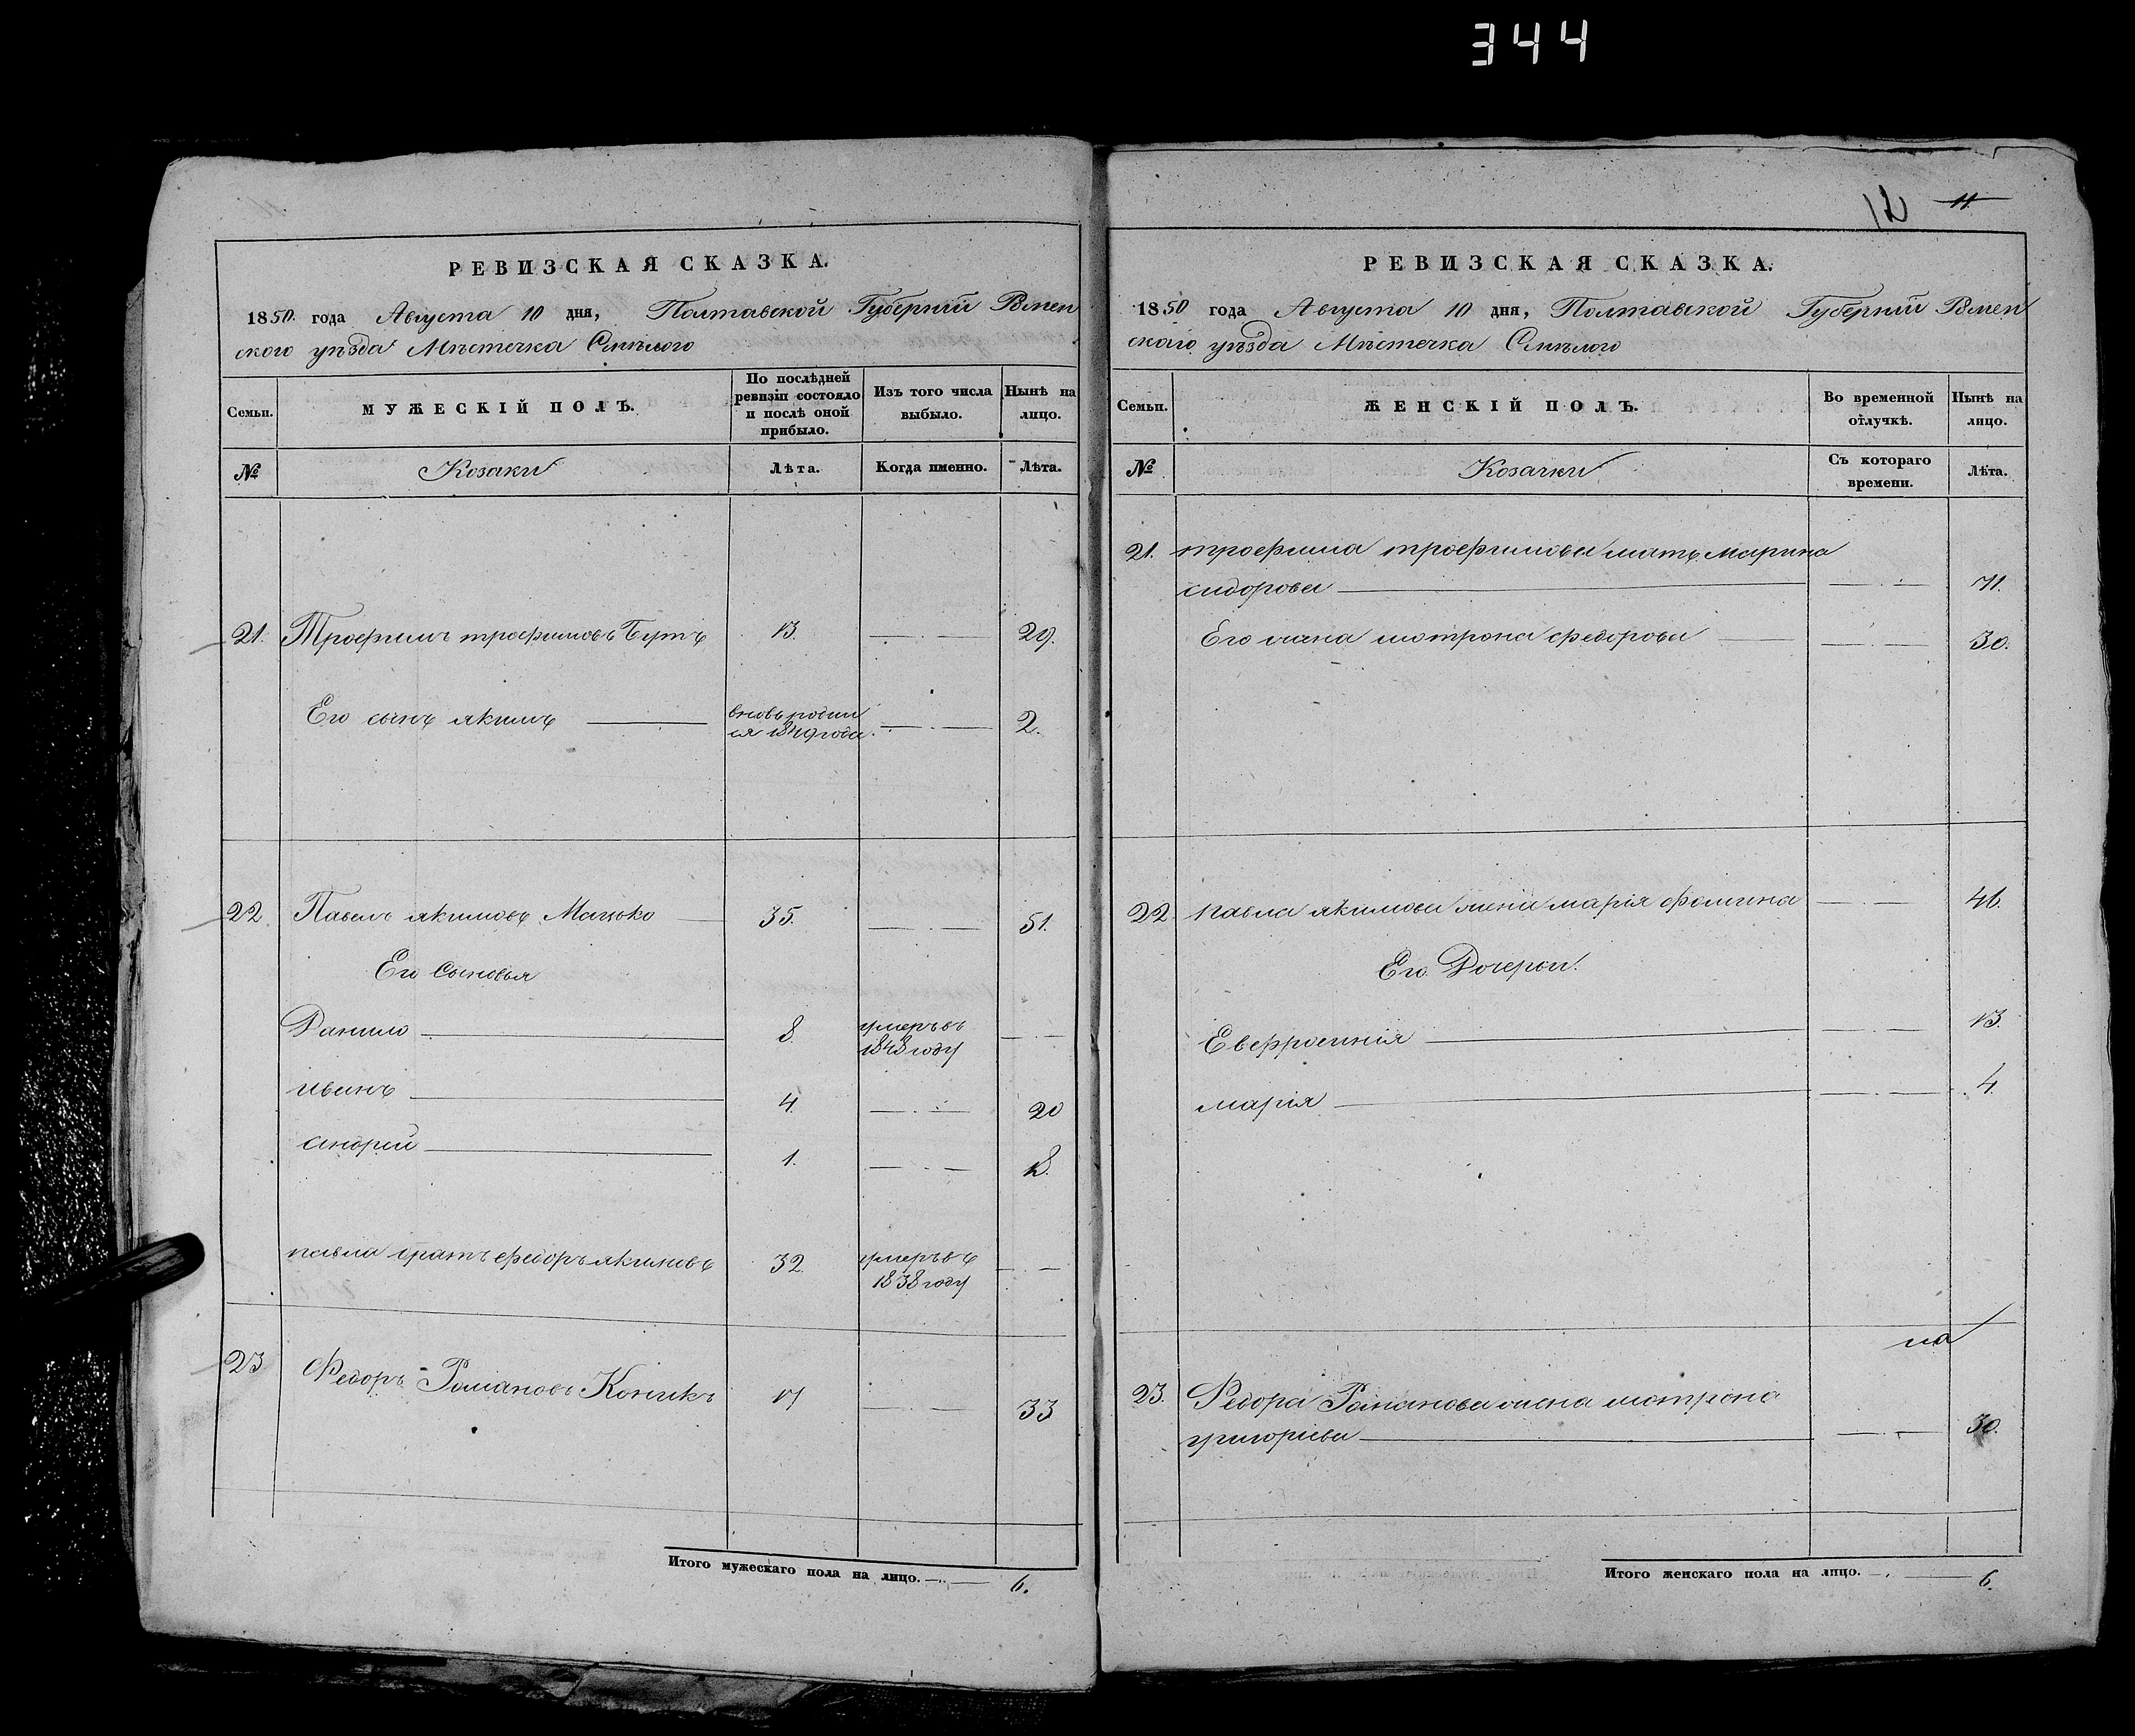 344
РЕВИЗСКАЯ СКАЗКА.
1850 года Августа 10 дня, Полтавской Губерніи Ромен
ского уѣзда Мѣстечка Смѣлого
Семьи.
МУЖЕСКІЙ ПОЛЪ.
По послѣдней ревизіи состояло и послѣ оной прибыло.
Изъ того числа выбыло.
Нынѣ на лицо.
№
Козаки
Лѣта.
Когда именно.
Лѣта.
21. Трофимъ трофимовъ Бутъ 13. 29.
Его сынъ якимъ вновь родил 2.
ся 1849 года
22. Павелъ якимовъ Мацько 35. 51.
Его Сыновья
Данило 8. умеръ въ
1848 году
иванъ 4. 20
андрей 1. 18.
павла братъ федоръ якимовъ 32. умеръ въ
1838 году
23 Федоръ Романовъ Коникъ 17 33
Итого мужескаго пола на лицо. 6.
12 11.
РЕВИЗСКАЯ СКАЗКА.
1850 года Августа 10 дня, Полтавской Губерніи Ромен
ского уѣзда Мѣстечка Смѣлого
Семьи.
ЖЕНСКІЙ ПОЛЪ.
Во временной отлучкѣ.
Нынѣ на лицо.
№
Козачки
Съ котораго времени.
Лѣта.
21. трофима трофимова мать марина
сидорова 71.
Его жена мотрона федорова 30.
22 павла якимова жена марія фомина 46.
Его Дочери.
Евфросинія 13.
марія 4.
23. Федора Романова жена мотрона
григорьева 30.
Итого женскаго пола на лицо. 6.